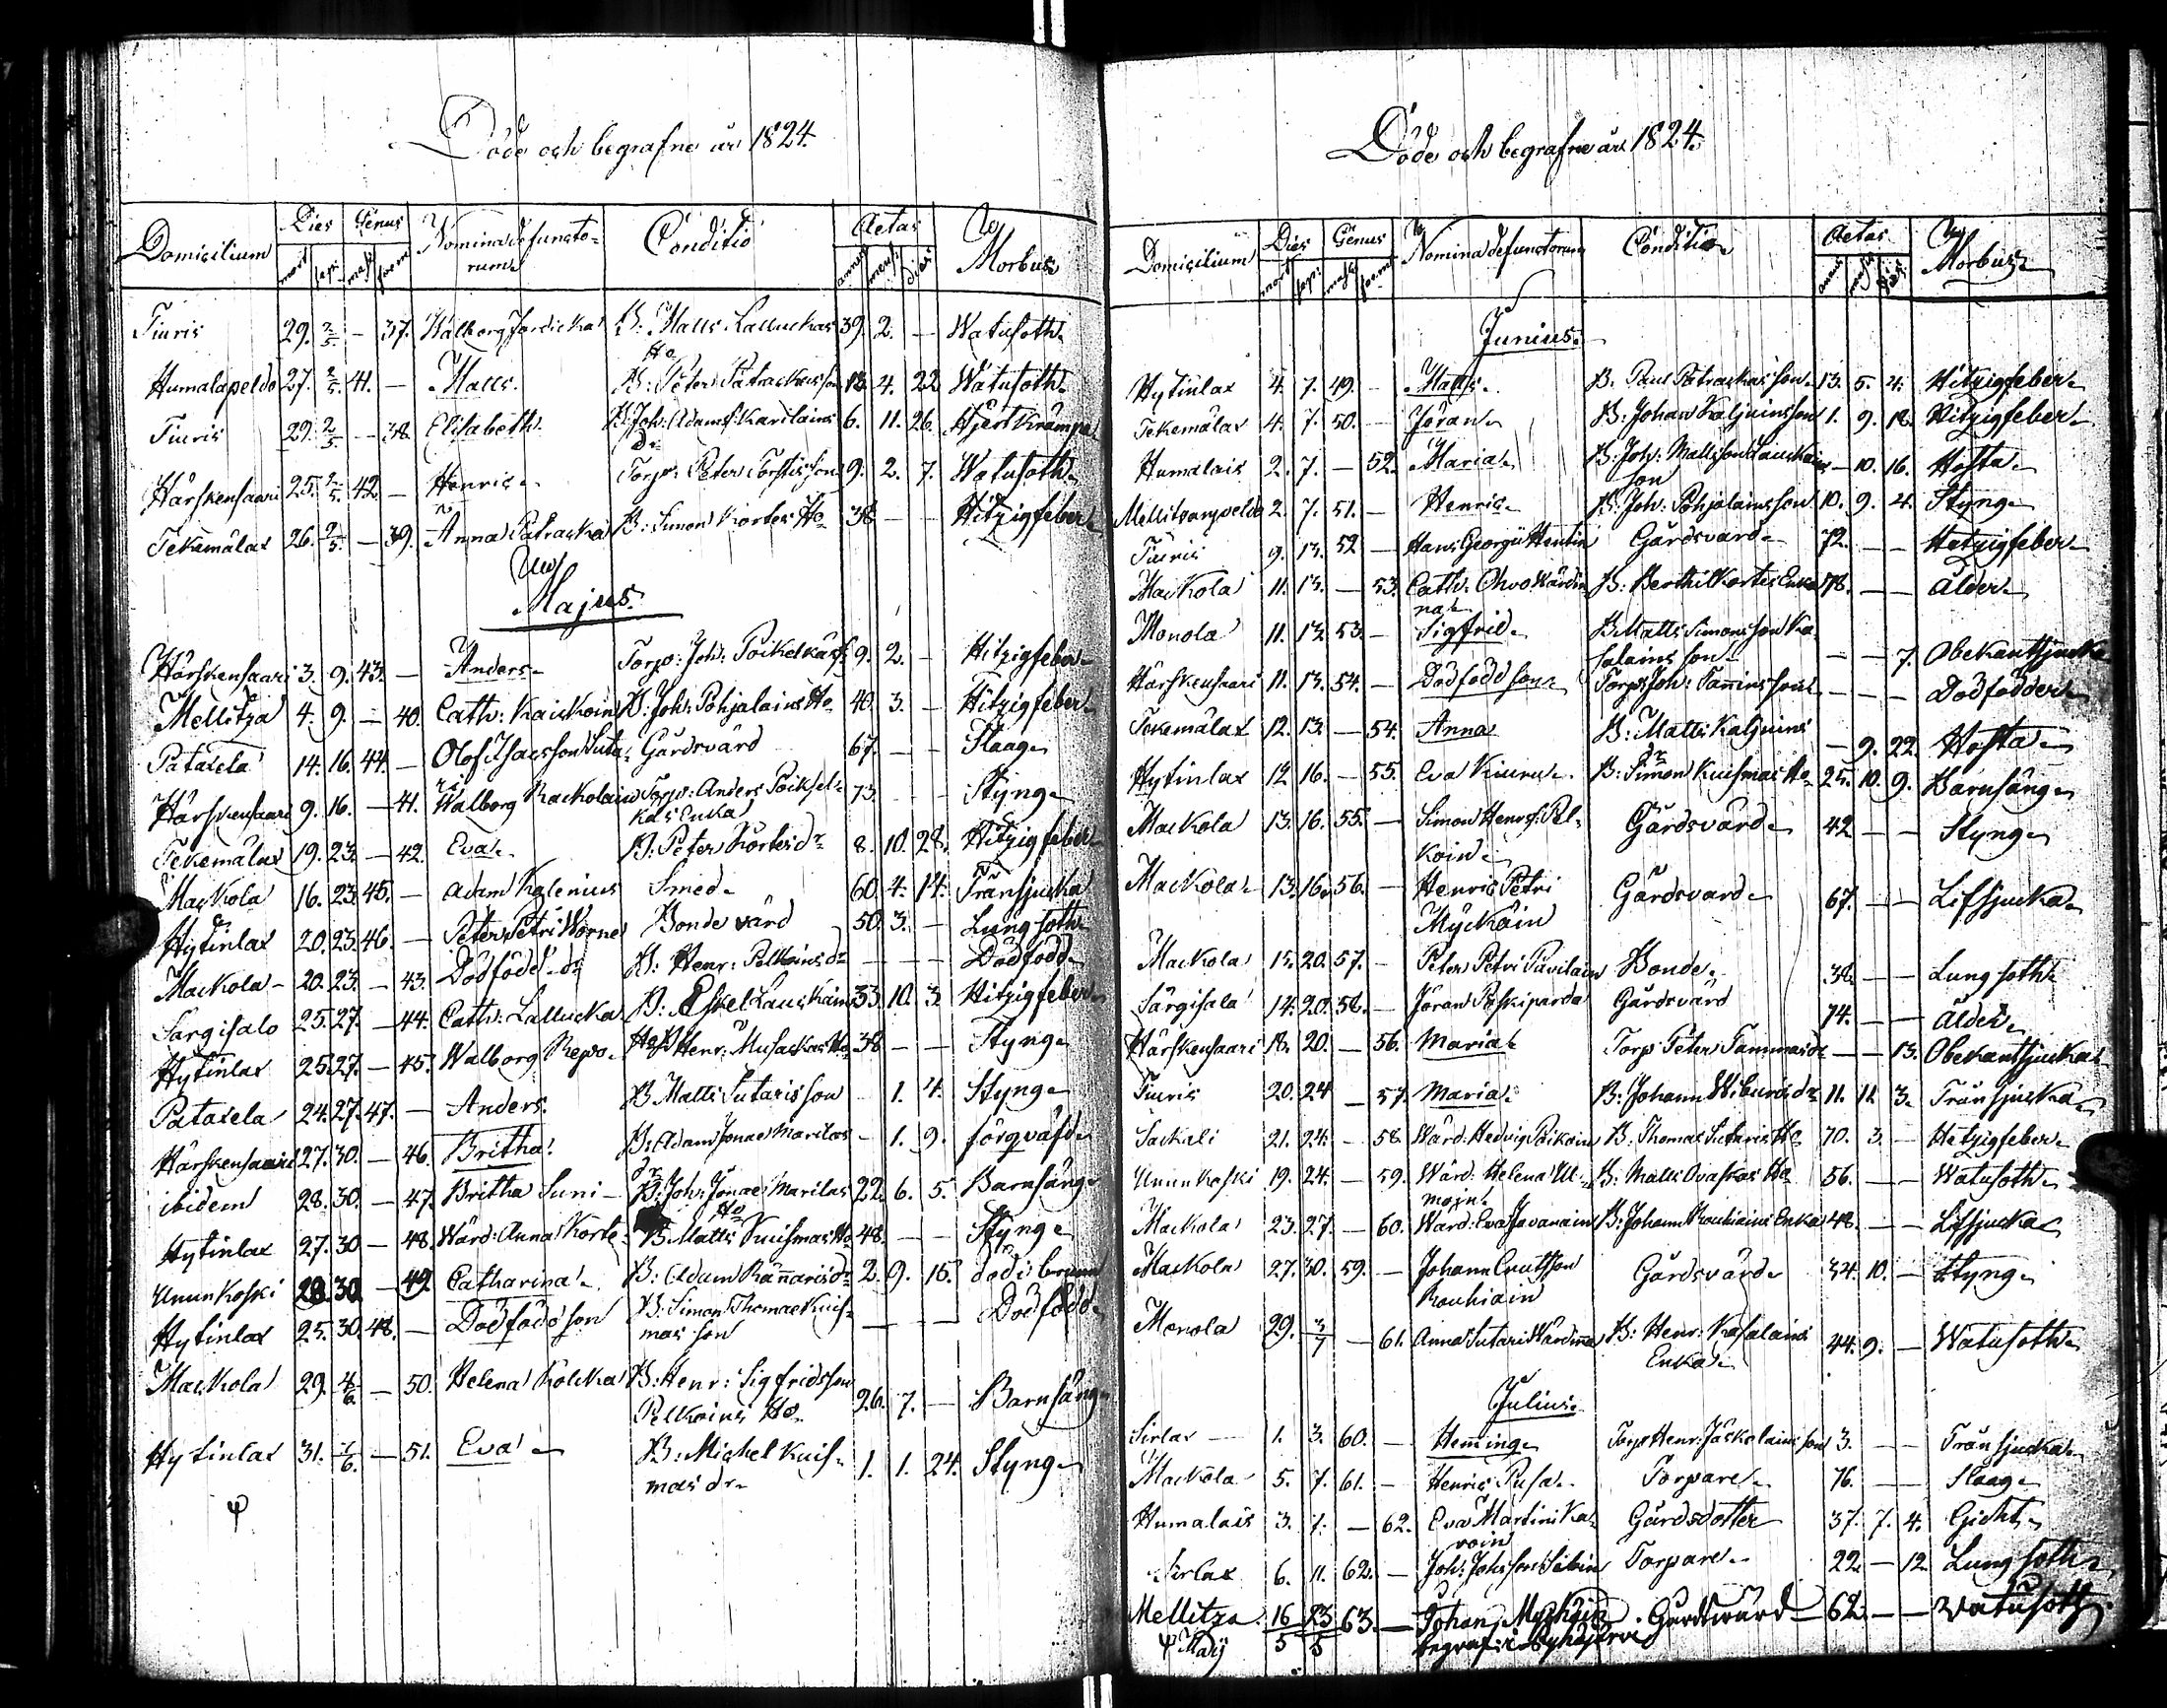 Döde och begrafne år 1824.
Domicilium Dies Genus Nomina defuncto= Conditio Aetas Morbus
mort. sep. mask. foem. rum annus mens. dies
Tiuris 29. 2/5 — 37. Walborg B: Matts Lalluckas 39. 2. — Watusoth
Ho
Humalapeldo 27. 2/5. 41. — Matts. B: Peter Patrackas son 13. 4. 22 Watusoth
Tiuris 29. 2/5 — 38. Elisabeth. B: Joh: Adamsf: Karilains 6. 11. 26. Hjertkrampa
dr
Härskensaari 25. 2/5. 42. — Henric Torp: Peter Torstis son 9. 2. 7. Watusoth
Tekemälax 26. 2/5. — 39. Anna Patracka B: Simon Kortes Ho 38 — — Hitzigfeber
Majus.
Härskensaari 3. 9. 43. — Anders Torp: Joh: Poikelkas 9. 2. — Hitzigfeber
Mellitza 4. 9. — 40. Cath: Kaickoin B: Joh: Pohjalains Ho 40. 3. — Hitzigfeber
Pataxela 14. 16. 44. — Olof Isacsson Suta= Gårdsvärd 67. — — Slaag
ri
Härskensaari 9. 16. — 41. Walborg Rackolain Torp: Anders Poikel= 73. — — Styng
kas Enka
Tekemälax 19. 23. — 42. Eva B: Peter Kortes dr 8. 10. 28. Hitzigfeber
Mackola 16. 23. 45. — Adam Kalenius Smed 60. 4. 14. Trånsjucka
Hytinlax 20. 23. 46. — Peter Petri Worne Bonde värd 50. 3. — Lungsoth
Mackola 20. 23. — 43. Dödfödd dr B: Henr: Pelkoins dr — — — Dödfödd
Särgisalo 25. 27. — 44. Cath: Lallucka B: Eskel Lauckains 33. 10. 3. Hitzigfeber
Ho
Hytinlax 25. 27. — 45. Walborg Repo B Henr: Musackas Ho 38 — — Styng
Pataxela 24. 27. 47. — Anders. B Matts Sutaris son 1. 4. Styng
Härskensaari 27. 30. — 46. Britha B: Adam Jonae Marilas — 1. 9. förqväfd
dr
ibidem 28. 30. — 47. Britha Suni B: Joh: Jonae Marilas 22. 6. 5. Barnsäng
Ho
Hytinlax 27. 30 — 48. Wärd: Anna Korte B Matts Kuismas Ho 48. — — Styng
Ununkoski 28. 30. — 49. Catharina B: Adam Rännaris dr 2. 9. 15. död i brunn
Hytinlax 25. 30. 48. — Dödfödd son B: Simon Thomae Kuis= — — — Dödfödd
mas son
Mackola 29. 6/6 — 50. Helena Kolcka B: Henr: Sigfridsson 26. 7. — Barnsäng
Pelkoins Ho
Hytinlax 31. 6/6. — 51. Eva B: Michel Kuis= 1. 1. 24. Styng
mas dr
φ
Döde och begrafne år 1824.
Domicilium Dies Genus Nomina defunctorum Conditio Aetas Morbus
mort. sep. mask. foem. annus mens. dies
Junius.
Hytinlax 4. 7. 49. — Matts B. Paul Patrackas son 13. 5. 4. Hitzigfeber
Tekemälax 4. 7. 50. — Jöran B: Johan Kaljuins son 1. 9. 18. Hitzigfeber
Humalais 2. 7. — 52. Maria B: Joh: Mattsson Lauckains — 10. 16. Hosta
son
Mellitsanpeldo 2. 7. 51. — Henric B: Joh: Pohjolains son 10. 9. 4. Styng
Tiuris 9. 13. 52 — Hans Georgii Hentin Gårdsvärd 72. — — Hetzigfeber
Mackola 11. 13. — 53. Cath: Ohvo Wärdin= B: Berthil Kortes Enka 78. — — Älder
na
Monola 11. 13. 53. — Sigfrid B Matts Simonsson Ka
salains son — — 7. Obekant sjucka
Härskensaari 11. 13. 54. — Dödfödd son Torp: Joh: Tannins son — — — Dödfödder
Tekemälax 12. 13. — 54. Anna B: Matts Kaljuins
dr — 9. 22. Hosta
Hytinlax 12 16. — 55. Eva Kiuru B: Simon Kuismas Ho 25. 10. 9. Barnsäng
Mackola 13. 16. 55. — Simon Henrs: Pel= Gårdsvärd 42 — — Styng
koin
Mackola 13. 16. 56. — Henric Petri Gårdsvärd 67. — — Lifsjucka
Myckäin
Mackola 15. 20. 57. — Peter Petri Pavilain Bonde 38. — — Lungsoth
Särgisala 14. 20. 58. — Jöran Paskiparda Gårdsvärd 74. — — Älder
Härskensaari 18. 20. — 56. Maria Torp: Peter Tammas dr — — 13. Obekant sjucka
Tiuris 20. 24 — 57. Maria B: Johann Wiburis dr 11. 11. 3. Trånsjucka
Sackali 21. 24. — 58. Wärd: Hedvig Poikain B: Thomas Sutaris Ho 70. 3. — Hetzigfeber
Ununkoski 19. 24. — 59. Wärd: Helena Ul= B: Matts Ovaskas Ho 56. — — Watusoth
main
Mackola 23. 27. — 60. Wärd: Eva Javanain B: Johann Rouhiains Enka 48. — — Lifsjucka
Mackola 27. 30. 59. — Johann Cnutsson Gårdsvärd 34. 10. — Styng
Rouhiain
Monola 29. 3/7 — 61. Anna Sutari Wärdinna B: Henr: Kasalains 44. 9. — Watusoth
Enka
Julius.
Sirlax — 1. 3. 60. — Heming Torp Henr: Jäskelains son 3. — — Trånsjucka
Mackola 5. 7. 61. — Henric Pusa Torpare 76. — — Slaag
Humalais 3. 7. — 62. Eva Martini Ka= Gårdsdotter 37. 7. 4. Gicht
voin
Sirlax 6. 11. 62. — Joh: Johsson Torpare 22 — 12. Lungsoth
Mellitza 16/5 23/5 63. — Johan Myckäin Gårdsvärd 62. — — Watusoth
φ Maij begraf: i Pyhäjerve